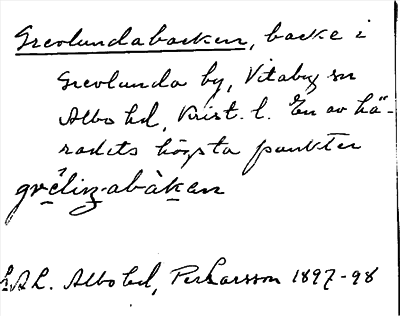 Grevlundabacken, backe i
Grevlunda by, Vitaby sn
Albo hd, Krist. l. En av hä-
radets högsta punkter
grèlinʒabàkan
LAL. Albo hd, Per Larsson 1897-98